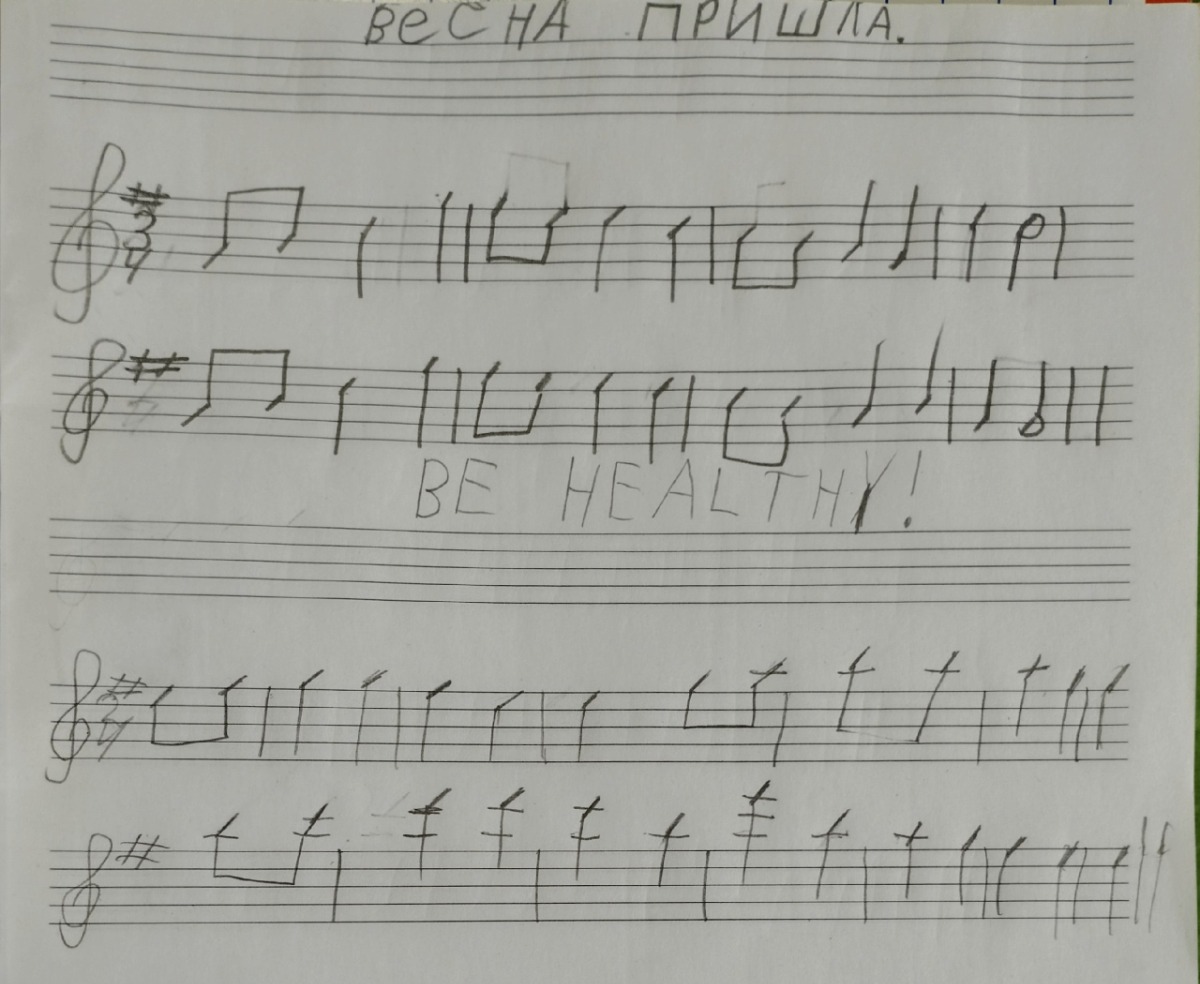 ВЕСНА ПРИШЛА.
3
4
BE HEALTHY!
3
4